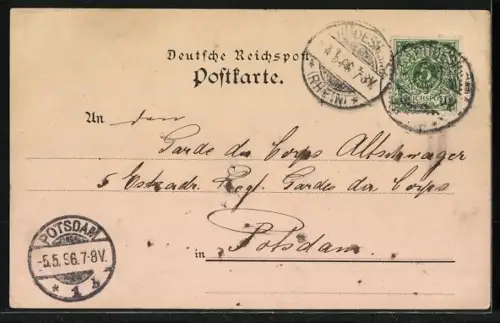 Deutsche Reichspost
Postkarte.
(RHEIN)
An den
Garde du Corps Altschwager
5 Eskadr. Regt. Gardes du Corps
in Potsdam
POTSDAM
-5.5.96.7-8V.
* 1 b